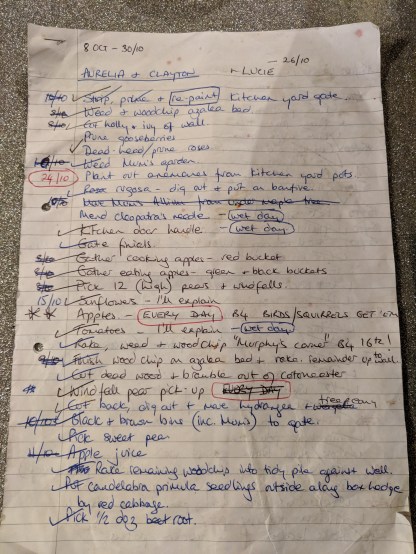 8 OCT - 30/10
- 26/10
AURELIA & CLAYTON + LUCIE
15/10 Strip, prime + re-paint kitchen yard gate.
Weed + woodchip azalea bed.
Cut holly + ivy of wall.
Prune gooseberries
Dead-head/prune roses.
Weed Mum's garden.
24/10 Plant out anemones from kitchen yard pots
Rosa rugosa - dig out + put on bonfire
Move Mum's Allium from under maple tree
Mend cleopatra's needle - wet day.
Kitchen door handle - wet day.
Gate finials
Gather cooking apples - red bucket
Gather eating apples - green + black buckets
Pick 12 (high) pears + windfalls.
15/10 Sunflowers - I'll explain
** Apples - EVERY DAY B4 BIRDS/SQUIRRELS GET 'EM
Tomatoes - I'll explain - wet day
Rake, weed + woodchip "Murphy's corner" By 16th!
Finish woodchip on azalea bed + rake remainder up to wall.
Cut dead wood + bramble out of cotoneaster
* Windfall pear pick-up EVERY DAY
Cut back, dig out + move hydrangea + tree peony
Black + brown bins (inc. Mum's) to gate.
Pick sweet peas
Apple juice
Rake remaining woodchips into tidy pile against wall.
Put candelabra primula seedlings outside along box hedge
by red cabbage.
Pick 1/2 doz beetroot.